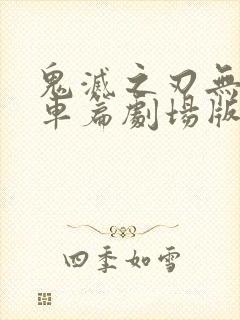 鬼滅之刃無
車篇劇場版
四季如雪